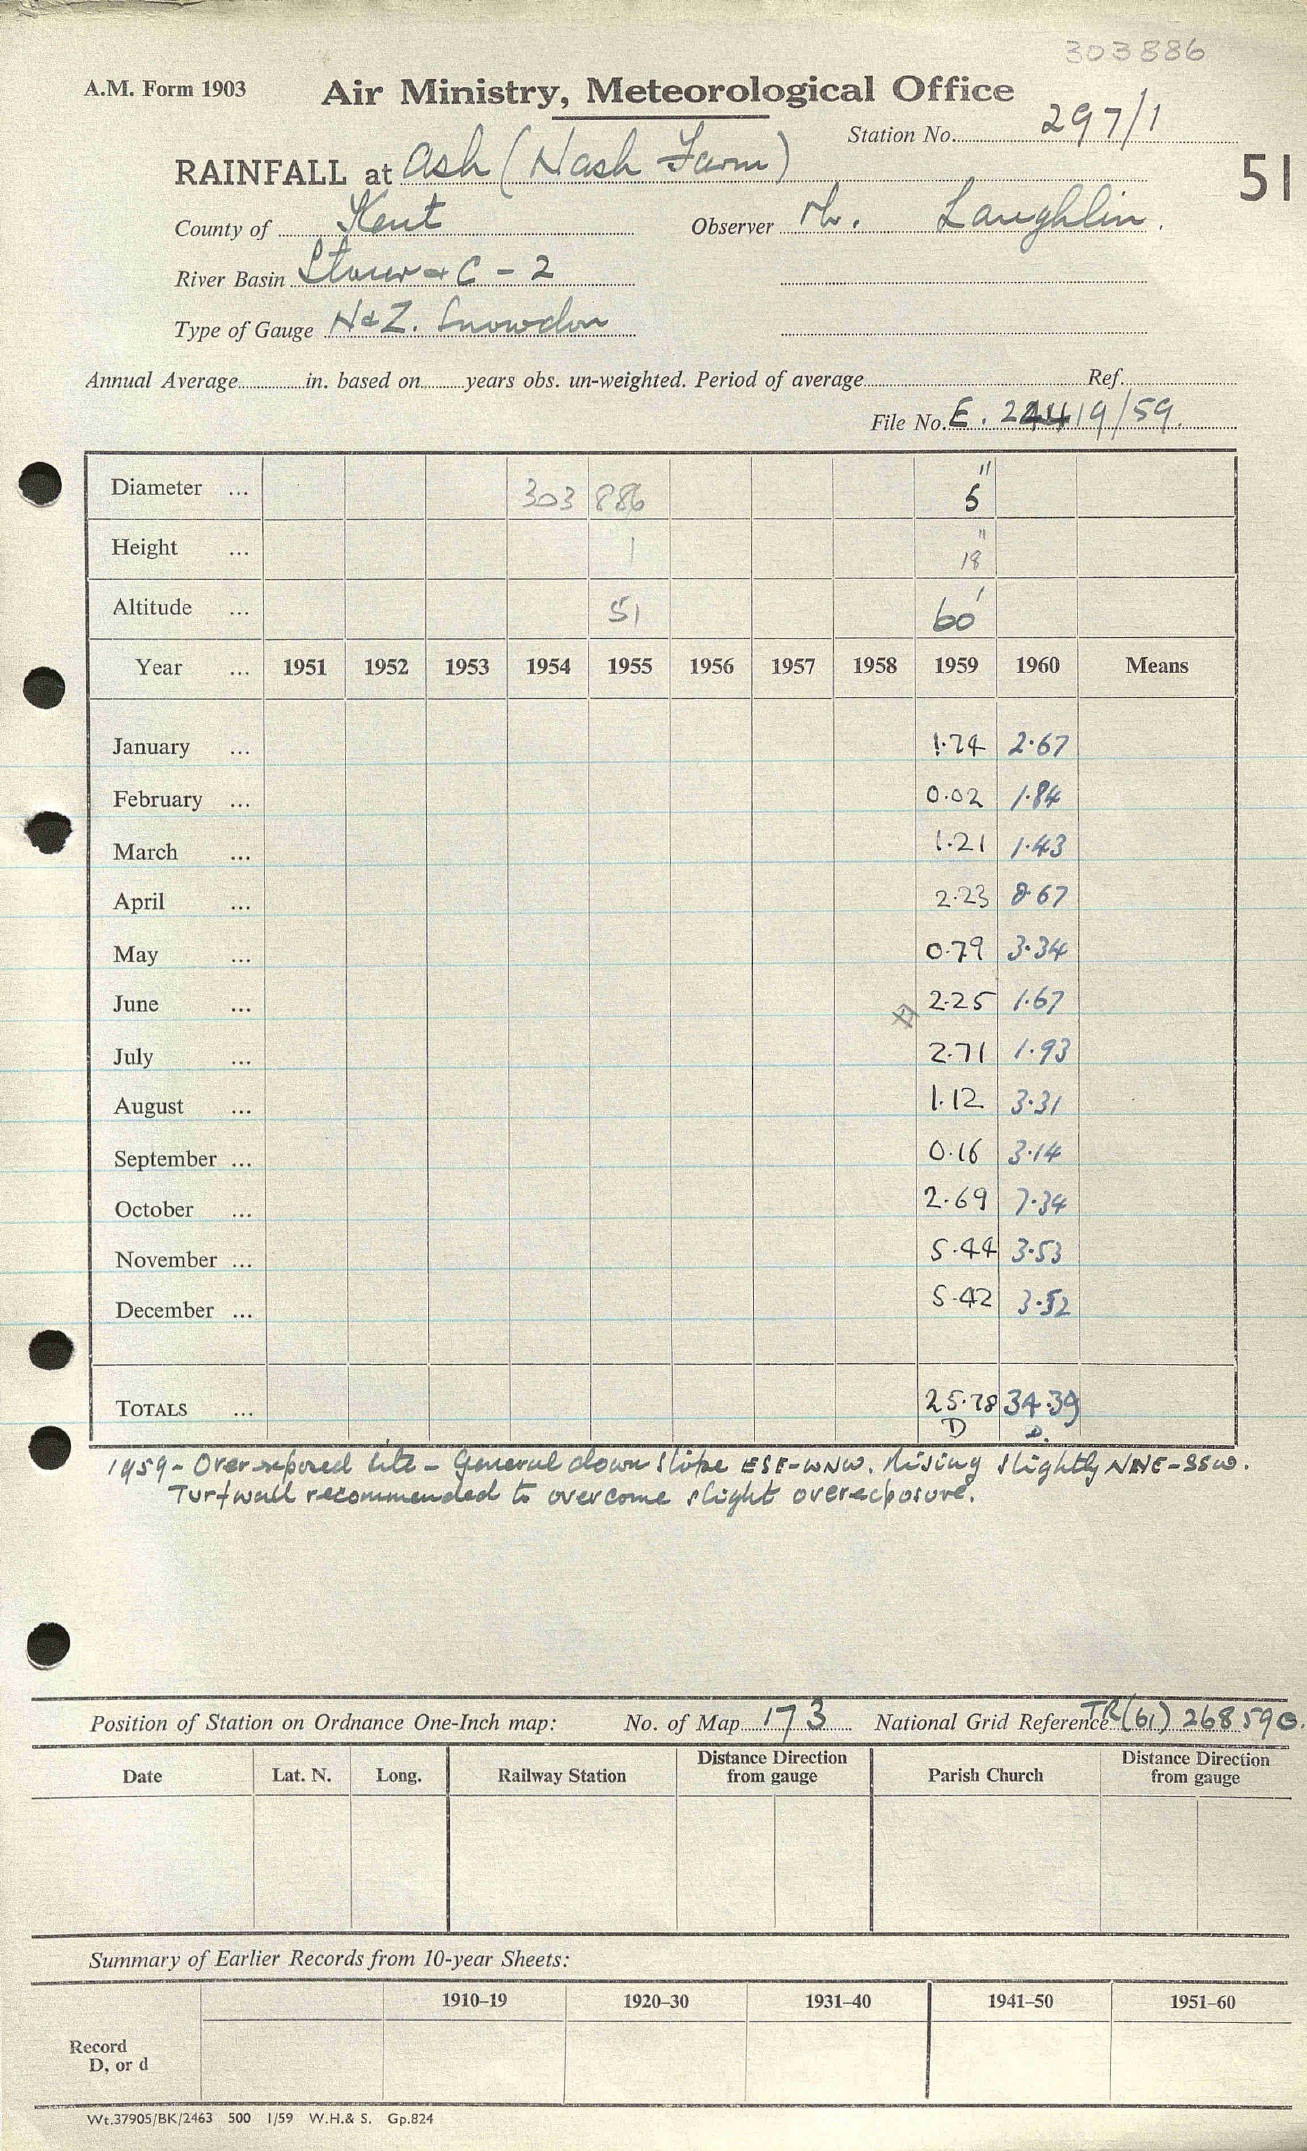 303886
A.M. Form 1903
Air Ministry, Meteorological Office
Station No. 297/1
51
RAINFALL at Ash (Nash Farm)
County of Kent Observer Mr. Laughlin.
River Basin Stour & C - 2
Type of Gauge N & Z. Snowdon
Annual Average in. based on years obs. un-weighted. Period of average Ref.
File No. E. 19/59.
Diameter ... 303 886 5"
Height ... 1 18"
Altitude ... 51 60'
Year ... 1951 1952 1953 1954 1955 1956 1957 1958 1959 1960 Means
January ... 1.74 2.67
February ... 0.02 1.84
March ... 1.21 1.43
April ... 2.23 0.67
May ... 0.79 3.34
June ... 2.25 1.67
July ... 2.71 1.93
August ... 1.12 3.31
September ... 0.16 3.14
October ... 2.69 7.34
November ... 5.44 3.53
December ... 5.42 3.52
TOTALS ... 25.78 34.39
D D.
1959 - Over exposed site - General down slope ESE-WNW. Rising slightly NNE-SSW.
Turf wall recommended to overcome slight overexposure.
Position of Station on Ordnance One-Inch map: No. of Map 173 National Grid Reference TR (61) 268590.
Date Lat. N. Long. Railway Station Distance Direction from gauge Parish Church Distance Direction from gauge
Summary of Earlier Records from 10-year Sheets:
1910–19 1920–30 1931–40 1941–50 1951–60
Record
D, or d
Wt.37905/BK/2463 500 1/59 W.H.& S. Gp.824